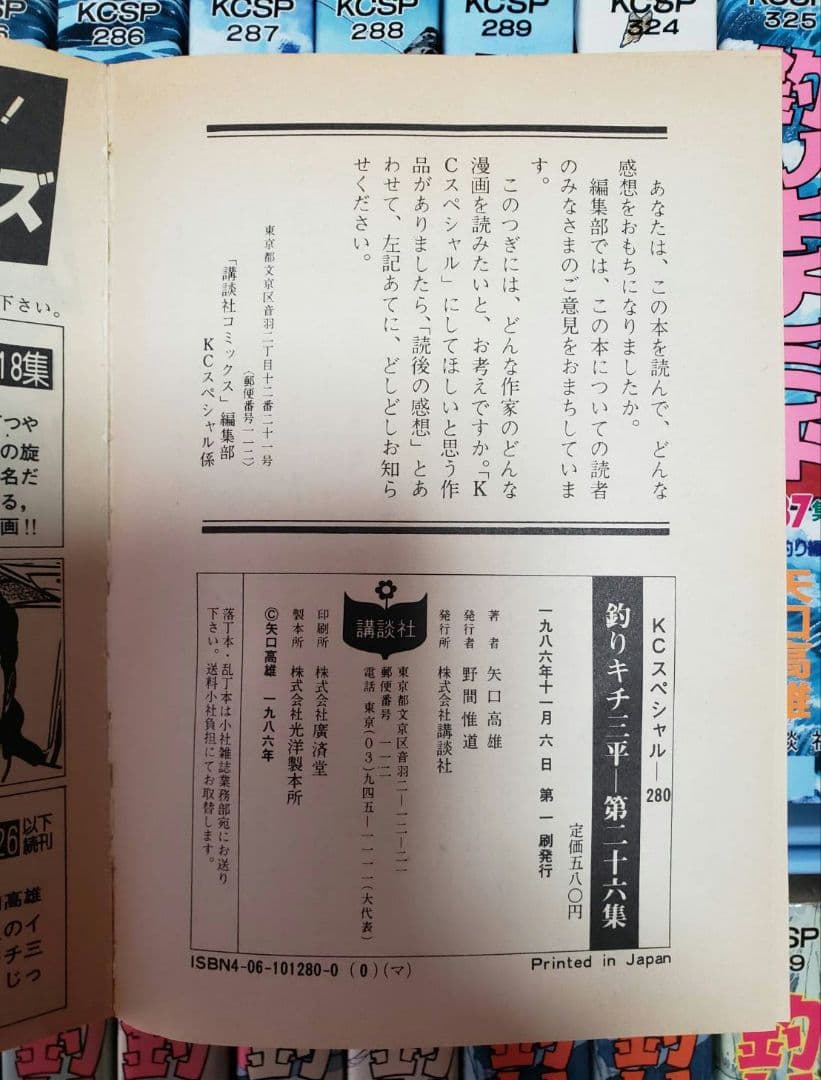 KCSP
286
KCSP
287
KCSP
288
KCSP
289
KCSP
324
KCSP
325
！
ズ
下さい。
18集
つや
の旋
名だ
る，
画!!
26 以下続刊
高雄
のイ
チ三
じつ
あなたは、この本を読んで、どんな
感想をおもちになりましたか。
編集部では、この本についての読者
のみなさまのご意見をおまちしていま
す。
このつぎには、どんな作家のどんな
漫画を読みたいと、お考えですか。「K
Cスペシャル」にしてほしいと思う作
品がありましたら、「読後の感想」とあ
わせて、左記あてに、どしどしお知ら
せください。
東京都文京区音羽二丁目十二番二十一号
（郵便番号一一二）
「講談社コミックス」編集部
KCスペシャル係
KCスペシャル—280
釣りキチ三平—第二十六集
定価五八〇円
一九八六年十一月六日 第一刷発行
著 者 矢口高雄
発行者 野間惟道
発行所 株式会社講談社
東京都文京区音羽二—一二—二一
郵便番号 一一二
電話 東京（03）九四五—一一一一（大代表）
講談社
印刷所 株式会社廣済堂
製本所 株式会社光洋製本所
©矢口高雄 一九八六年
落丁本・乱丁本は小社雑誌業務部宛にお送り
下さい。送料小社負担にてお取替します。
ISBN4-06-101280-0 (0)(マ)
Printed in Japan
釣りキチ三平
37集
矢口高雄
SP
9
釣
釣
釣
釣
釣
釣
釣